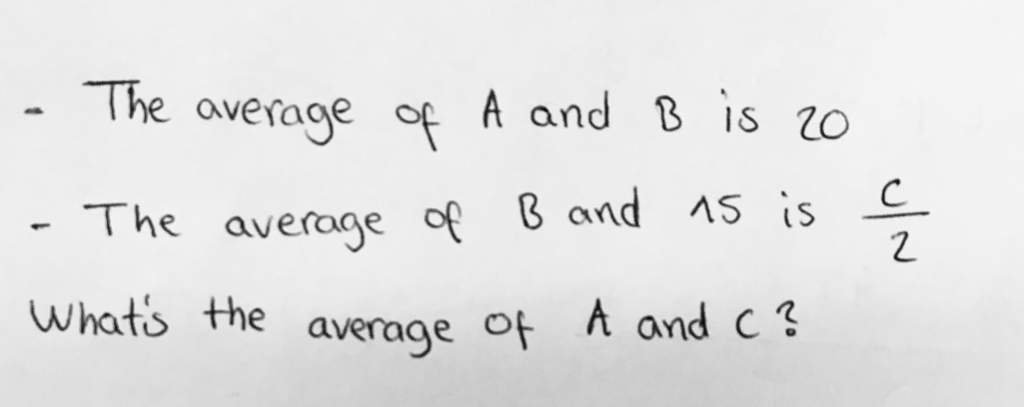 - The average of A and B is 20
- The average of B and 15 is C/2
What's the average of A and C?